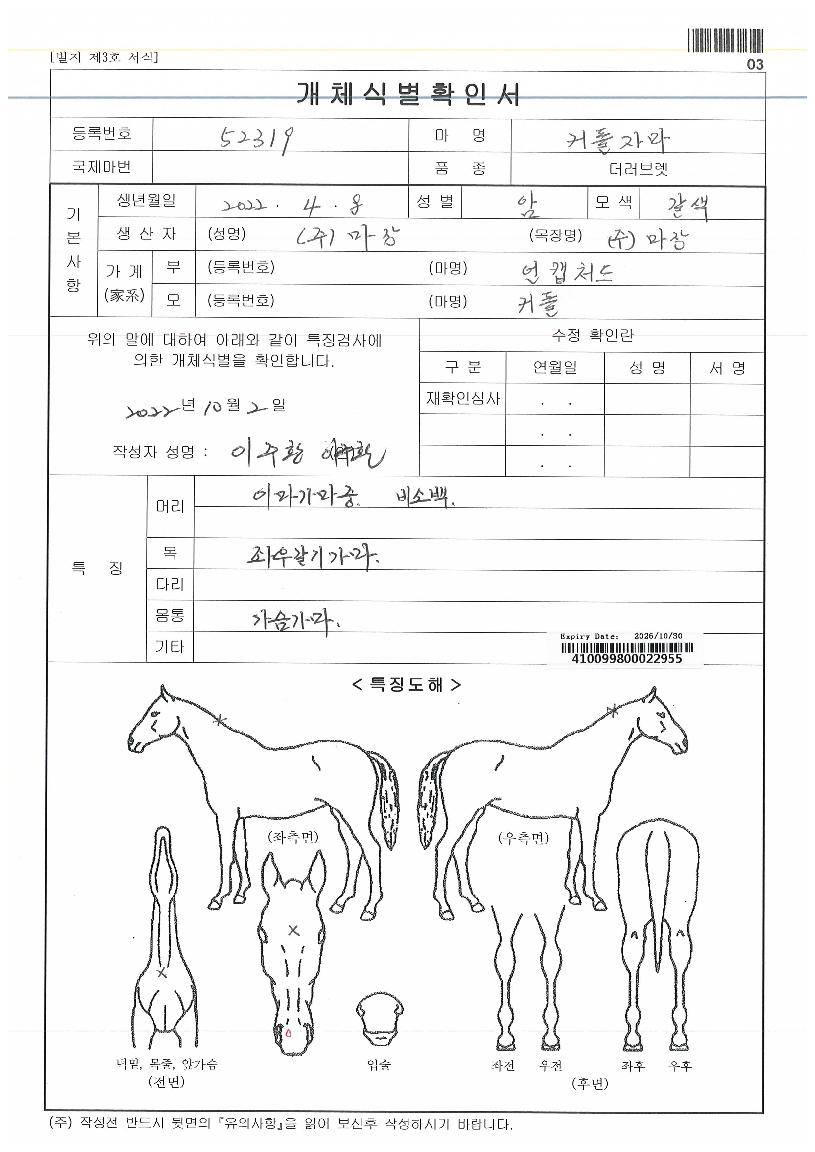 [별지 제3호 서식]
03
개체식별확인서
등록번호 52319 마 명 커플자마
국제마번 품 종 더러브렛
기본사항
생년월일 2022. 4. 8 성별 암 모색 갈색
생산자 (성명) (주) 마장 (목장명) (주) 마장
가계(家系) 부 (등록번호) (마명) 언캡처드
모 (등록번호) (마명) 커플
위의 말에 대하여 아래와 같이 특징검사에
의한 개체식별을 확인합니다.
2022년 10월 2일
작성자 성명 : 이주황
수정 확인란
구 분 연월일 성 명 서 명
재확인심사 . .
. .
. .
특 징
머리 이마가마중. 비소백.
목 좌우갈기가마.
다리
몸통 가슴가마.
기타
Expiry Date: 2026/10/30
410099800022955
< 특징도해 >
(좌측면) (우측면)
너밑, 목줄, 앞가슴
(전면)
입술
좌전 우전 좌후 우후
(후면)
(주) 작성전 반드시 뒷면의 『유의사항』을 읽어 보신후 작성하시기 바랍니다.